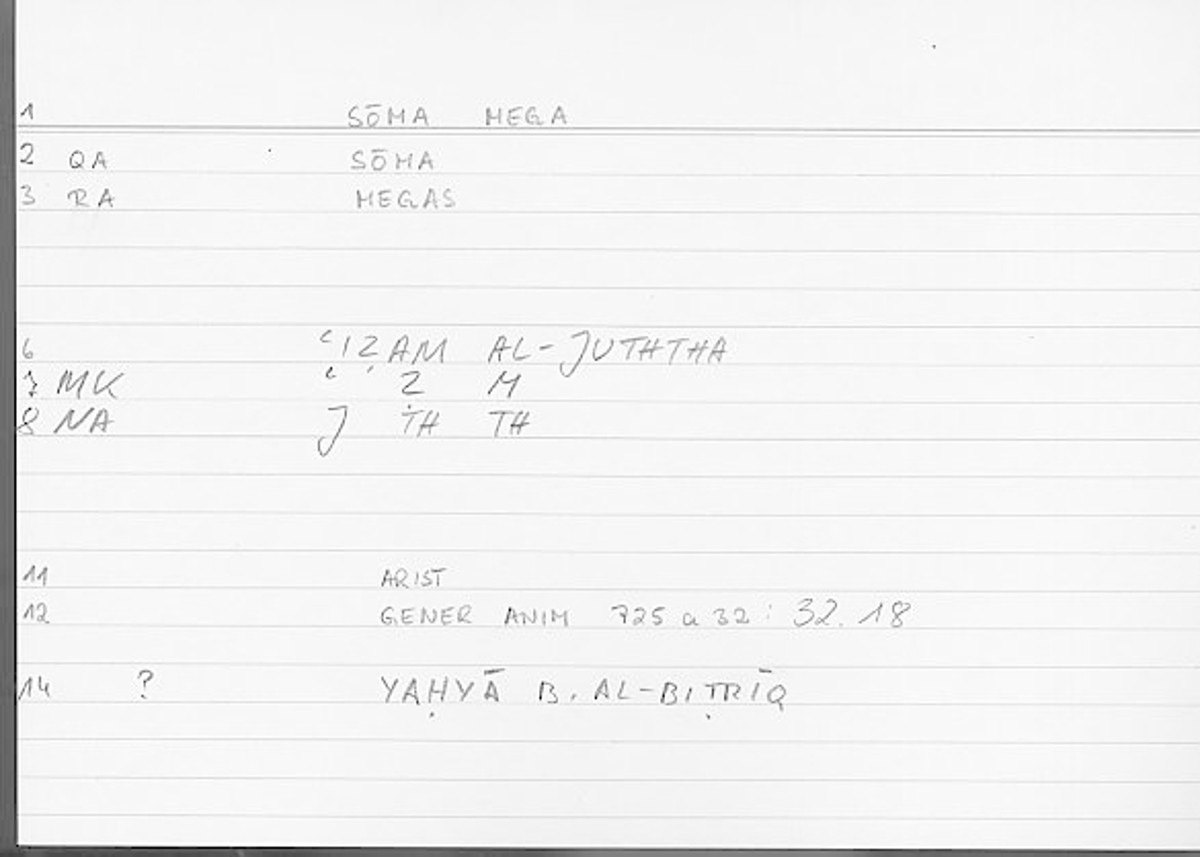 1 SŌMA MEGA
2 QA SŌMA
3 RA MEGAS
6 ʿIẒAM AL-JUTHTHA
7 MK ʿ Ẓ M
8 NA J TH TH
11 ARIST
12 GENER ANIM 725 a 32 : 32.18
14 ? YAḤYĀ B. AL-BIṬRĪQ